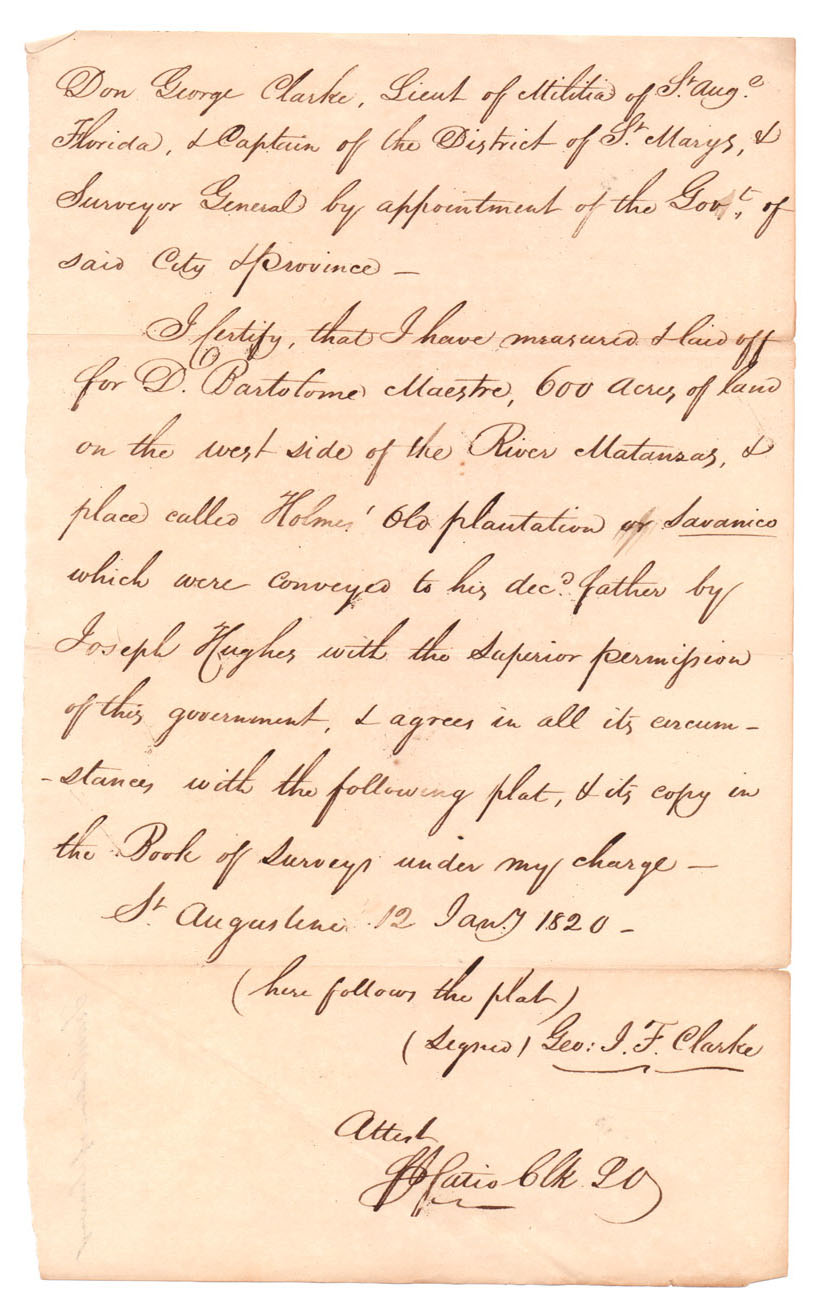 Don George Clarke, Lieut of Militia of St. Auge.
Florida, & Captain of the District of St. Marys, &
Surveyor General by appointment of the Govt., of
said City & province —
I Certify, that I have measured & laid off
for D. Bartolome Maestre, 600 Acres of land
on the west side of the River Matanzas, &
place called Holmes' Old plantation or Savanico
which were conveyed to his decd. father by
Joseph Hughes with the superior permission
of this government, & agrees in all its circum-
-stances with the following plat, & its copy in
the Book of Surveys under my charge —
St. Augustine 12 Jany 1820 —
(here follows the plat)
(signed) Geo: I. F. Clarke
Attest
Clk